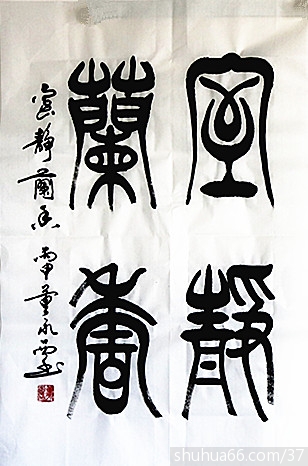 室靜
蘭香
室靜蘭香 丙申董永
shuhua66.com/37